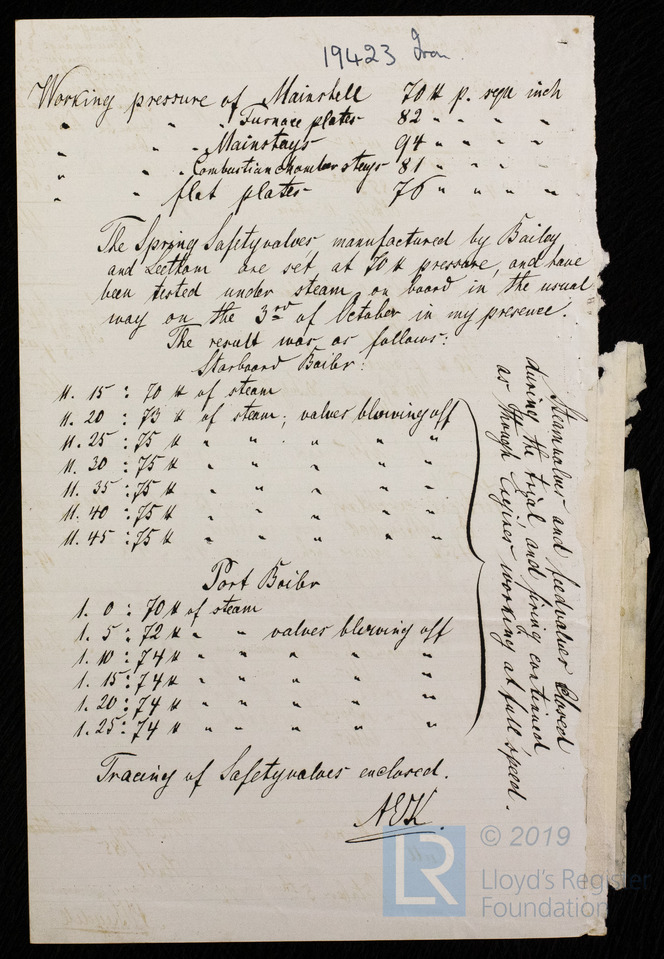 19423 Iron
Working pressure of Mainshell 70 ℔ p. squ inch
" " " Furnace plates 82 " " " "
" " " Mainstays 94 " " " "
" " " Combustion chamber stays 81 " " " "
" " flat plates 76 " " " "
The Spring Safetyvalves manufactured by Bailey
and Leetham are set at 70 ℔ pressure, and have
been tested under steam on board in the usual
way on the 3rd of October in my presence.
The result was as follows:
Starboard Boiler:
11. 15 : 70 ℔ of steam
11. 20 : 73 ℔ of steam; valves blowing off
11. 25 : 75 ℔ " " " " "
11. 30 : 75 ℔ " " " " "
11. 35 : 75 ℔ " " " " "
11. 40 : 75 ℔ " " " " "
11. 45 : 75 ℔ " " " " "
Port Boiler
1. 0 : 70 ℔ of steam
1. 5 : 72 ℔ " " valves blowing off
1. 10 : 74 ℔ " " " " "
1. 15 : 74 ℔ " " " " "
1. 20 : 74 ℔ " " " " "
1. 25 : 74 ℔ " " " " "
Steamvalves and feedvalves closed
during the trial and firing continued
as though Engines working at full speed.
Tracing of Safetyvalves enclosed.
AEK
© 2019
LR Lloyd's Register
Foundation